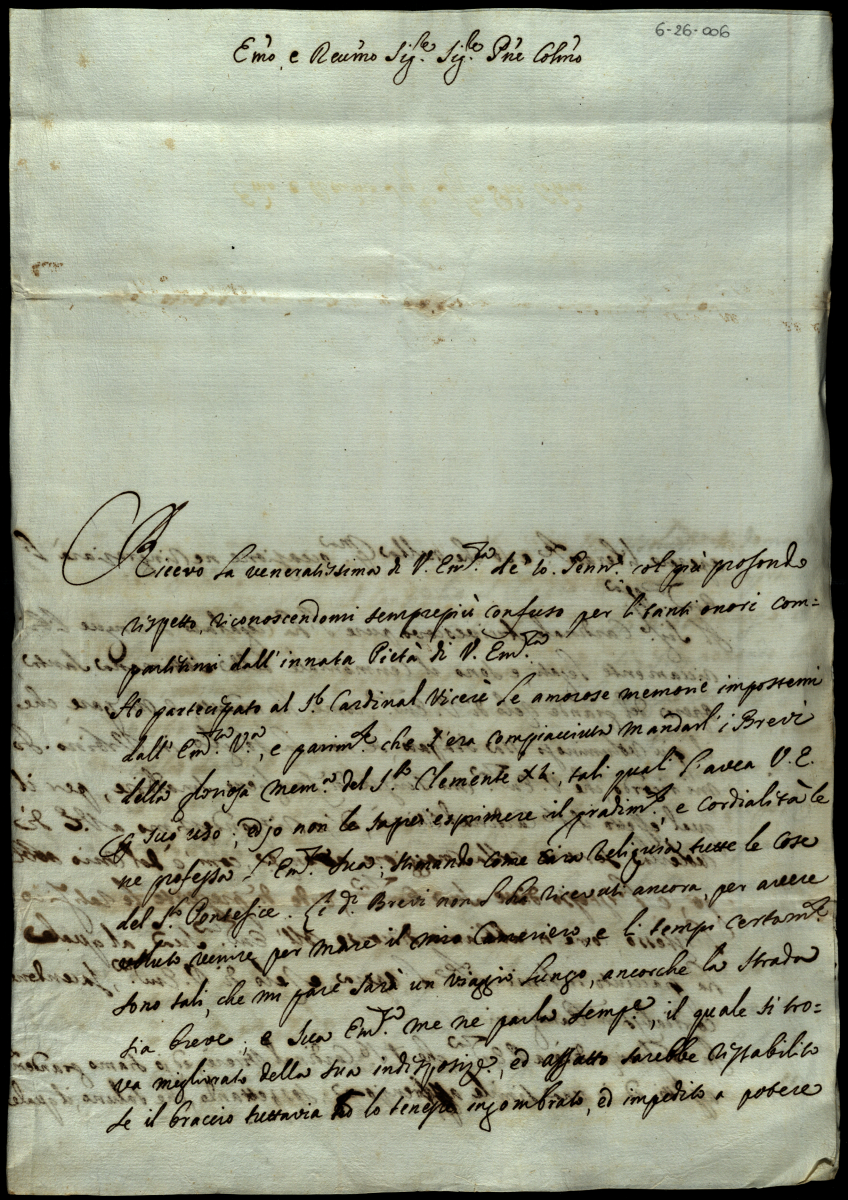 6-26-006
Emo e Revmo Sigre Sigre Pne Colmo
Ricevo la veneratissima di V. Emza de 10 Genno col più profondo
rispetto, riconoscendomi semprepiù confuso per li tanti onori com=
partitimi dall'innata Pietà di V. Emza
Ho participato al Sr Cardinal Vicerè le amorose memorie impostemi
dall' Emza Vra, e parimte che s'era compiacciuta mandarl' i Brevi
della gloriosa memra del Sto Clemente XI, tali quali l'avea V. E.
suo uso; ed jo non le saprei esprimere il gradimto, e cordialità le
ne professa l'Emza Sua, stimando come cara Reliquia tutte le cose
del Sto Pontefice. Li di Brevi non li hà ricevuti ancora, per avere
voluto venire per mare il mio Cameriero, e li tempi certamte
sono tali, che mi pare sarà un viaggio lungo, ancorche la strada
sia breve; e Sua Emza me ne parla sempe, il quale si tro=
va migliorato della sua indisposize, ed affatto sarebbe ristabilito
se il braccio tuttavia no lo tenesse ingombrato, ed impedito a potere